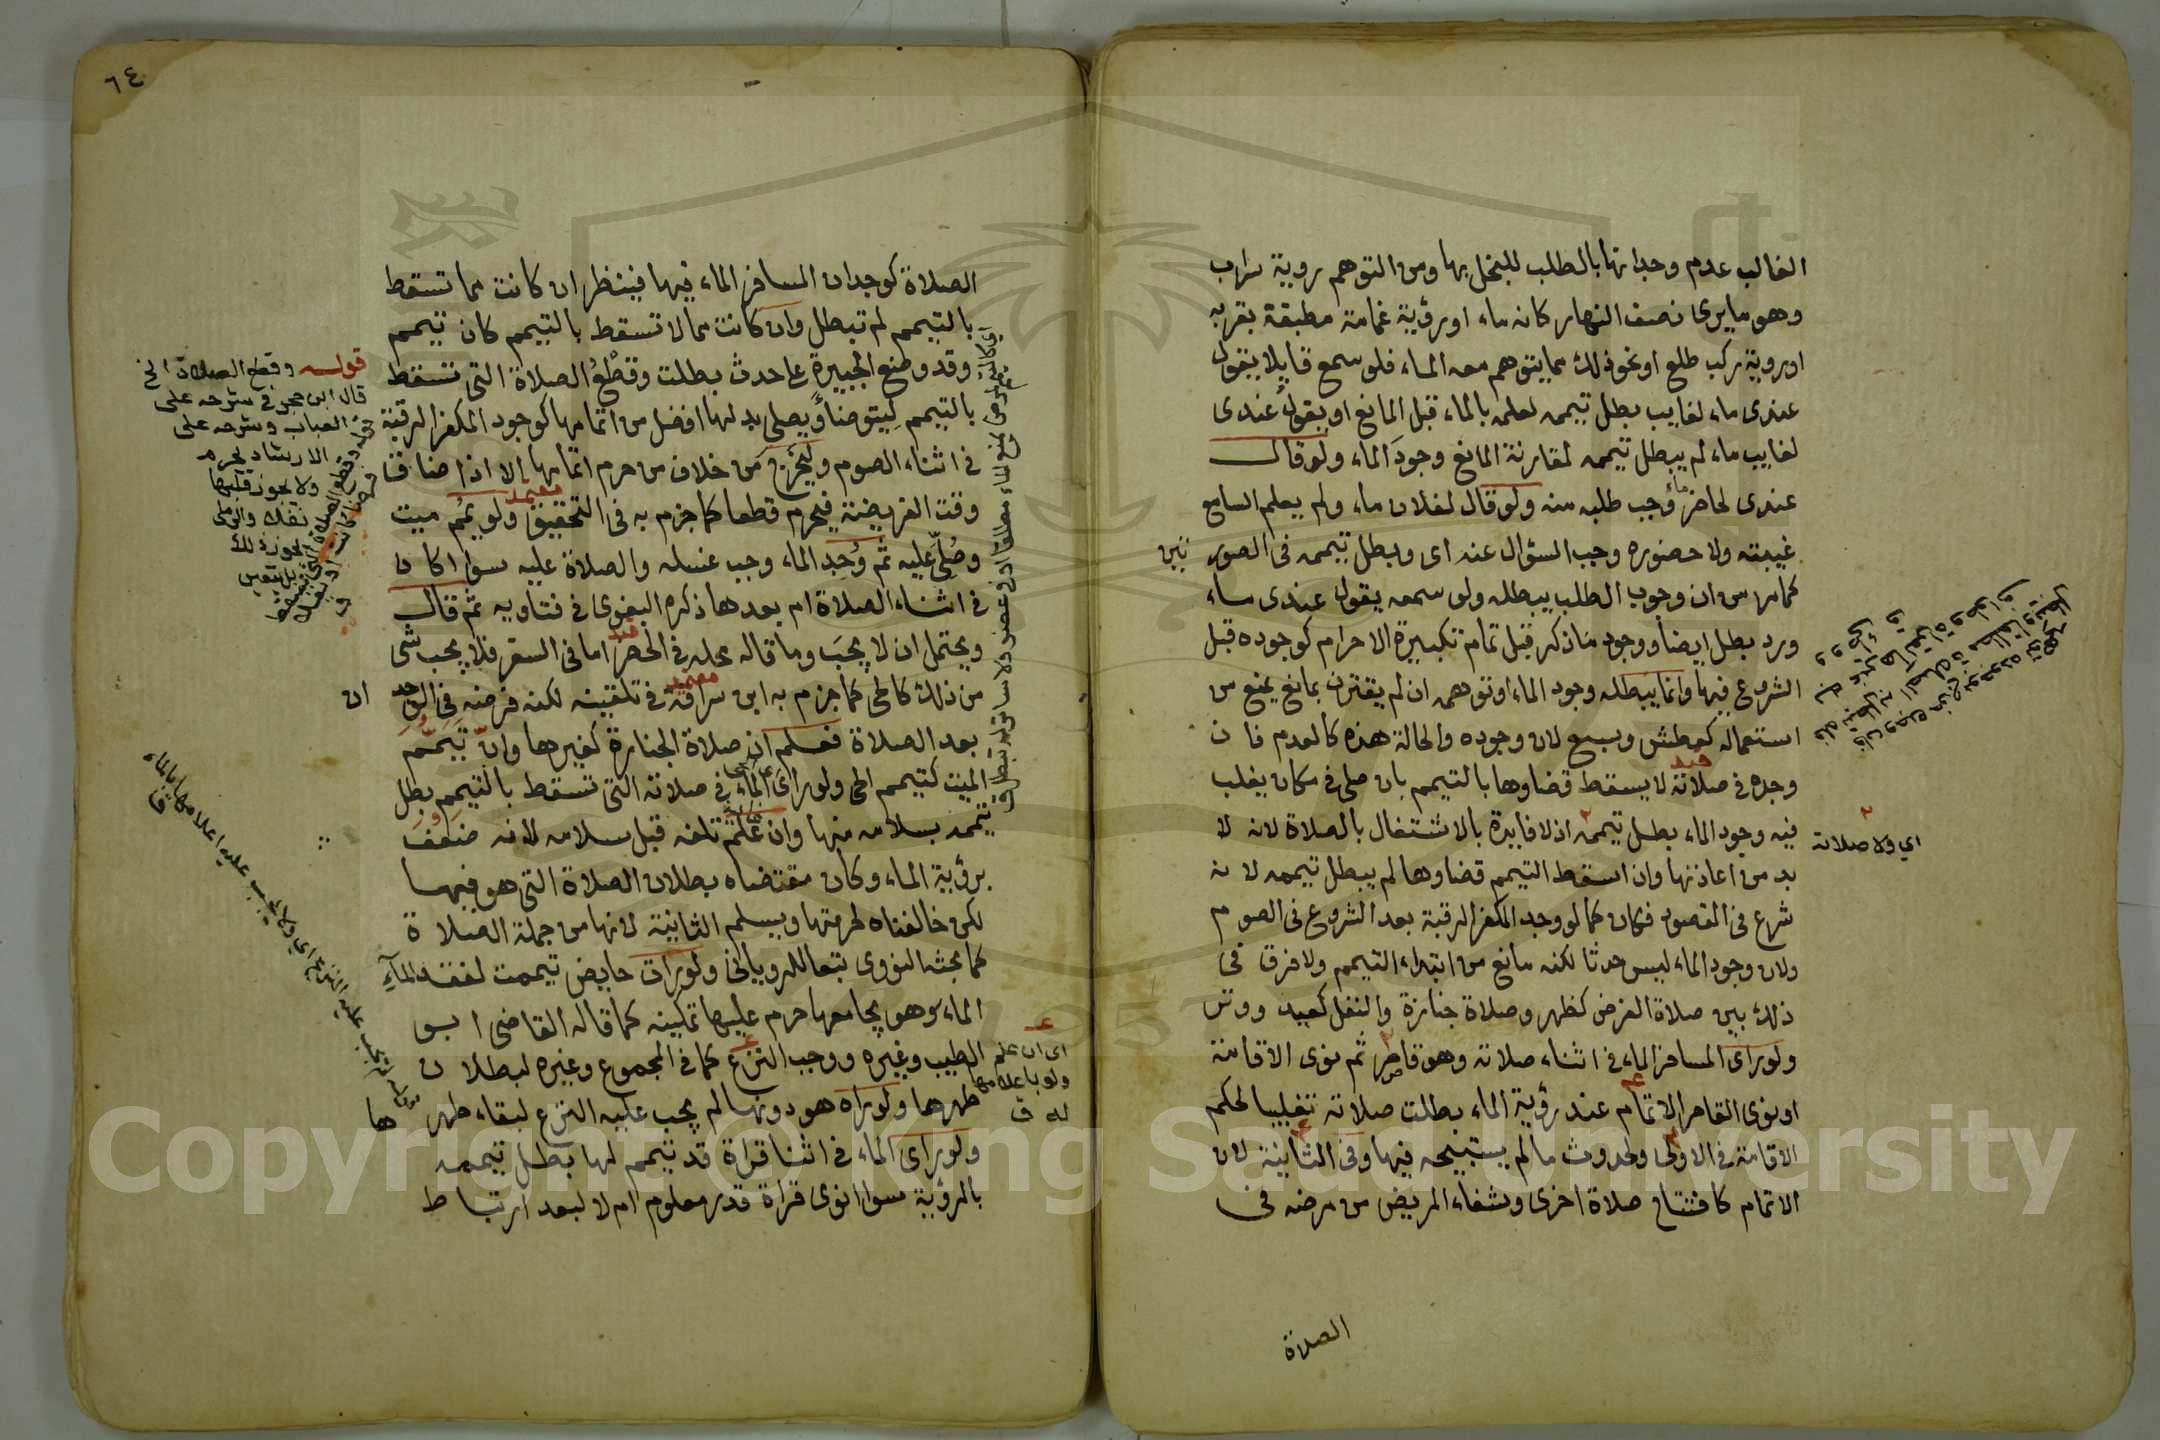 الغالب عدم وجدانها بالطلب للبخل بها ومن التوهم روية سراب
وهو ما يرى نصف النهار كانه ماء او رؤية غمامة مطبقة بقربه
او روية ركب طلع او نحو ذلك مما يتوهم معه الماء فلو سمع قايلا يقول
عندى ماء لغايب بطل تيممه لعلمه بالماء قبل المانع او يقول عندى
لغايب ماء لم يبطل تيممه لمقارنة المانع وجود الماء ولو قال
عندى لحاضر ماء وجب طلبه منه ولو قال لفلان ماء ولم يعلم السامع
غيبته ولا حضوره وجب السؤال عنه اى ويبطل تيممه فى الصور
تين
كما مر من ان وجوب الطلب يبطله ولو سمعه يقول عندى ماء
ورد بطل ايضا ووجود ما ذكر قبل تمام تكبيرة الاحرام كوجوده قبل
الشروع فيها وانما يبطله وجود الماء او توهمه ان لم يقترن بمانع يمنع من
استعماله كعطش وسبع لان وجوده والحالة هذه كالعدم فان
وجده في صلاته لا يسقط قضاوها بالتيمم بان صلى في مكان يغلب
فيه وجود الماء بطل تيممه اذ لا فايدة بالاشتغال بالصلاة لانه لا
اي ولا صلاته
بد من اعادتها وان اسقط التيمم قضاوها لم يبطل تيممه لانه
شرع في المقصود فكان كما لو وجد المكفر الرقبة بعد الشروع فى الصوم
ولان وجود الماء ليس حدثا لكنه مانع من ابتداء التيمم ولا فرق فى
ذلك بين صلاة الفرض كظهر وصلاة جنازة والنفل كعيد ووتر
ولو راى المسافر الماء في اثناء صلاته وهو قاصر ثم نوى الاقامة
او نوى القاصر الاتمام عند رؤية الماء بطلت صلاته تغليبا لحكم
الاقامة في الاولى ولحدوث ما لم يستبيحه فيها وفى الثانية لان
الاتمام كافتتاح صلاة اخرى وشفاء المريض من مرضه فى
الصلاة
٦٤
الصلاة كوجدان المسافر الماء فيها فينظر ان كانت مما تسقط
بالتيمم لم تبطل وان كانت مما لا تسقط بالتيمم كان تيمم
وقد وضع الجبيرة على حدث بطلت وقطع الصلاة التى تسقط
بالتيمم ليتوضا ويصلى بدلها افضل من اتمامها كوجود المكفر الرقبة
في اثناء الصوم وليخرج من خلاف من حرم اتمامها الا اذا ضاق
وقت الفريضة فيحرم قطعها كما جزم به فى التحقيق ولو يمم ميت
معتمد
وصلى عليه ثم وجد الماء وجب غسله والصلاة عليه سوا اكان
في اثناء الصلاة ام بعدها ذكره البغوى في فتاويه ثم قال
ويحتمل ان لا يجب وما قاله محله في الحضر اما فى السفر فلا يجب شى
من ذلك كالحى كما جزم به ابن سراقة في تلقينه لكنه فرضه في الوجد
ان
معتمد
بعد الصلاة فعلم ان صلاة الجنازة كغيرها وان تيمم
الميت كتيمم الحى ولو راى الماء في صلاته التى تسقط بالتيمم بطل
تيممه بسلامه منها وان علم تلفه قبل سلامه لانه ضعف
برؤية الماء وكان مقتضاه بطلان الصلاة التى هو فيها
لكن خالفناه لحرمتها ويسلم الثانية لانها من جملة الصلاة
كما بحثه النووى تبعا للرويانى ولو رات حايض تيممت لفقد الماء
الماء وهو يجامعها حرم عليها تمكينه كما قاله القاضى ابو
الطيب وغيره ووجب النزع كما في المجموع وغيره لبطلان
طهرها ولو راه هو دونها لم يجب عليه النزع لبقاء طهر
ها
ولو راى الماء في اثنا قراة قد تيمم لها بطل تيممه
بالرؤية سوا انوى قراة قدر معلوم ام لا لبعد ارتباط
قوله وقطع الصلاة الخ
قال ابن حجر في شرحه على
العباب وشرحه على
الارشاد يحرم
ولا يجوز قلبها
نفلا والرملى
يجوز ذلك
اى ان علم
ولو باعلامها
له ق